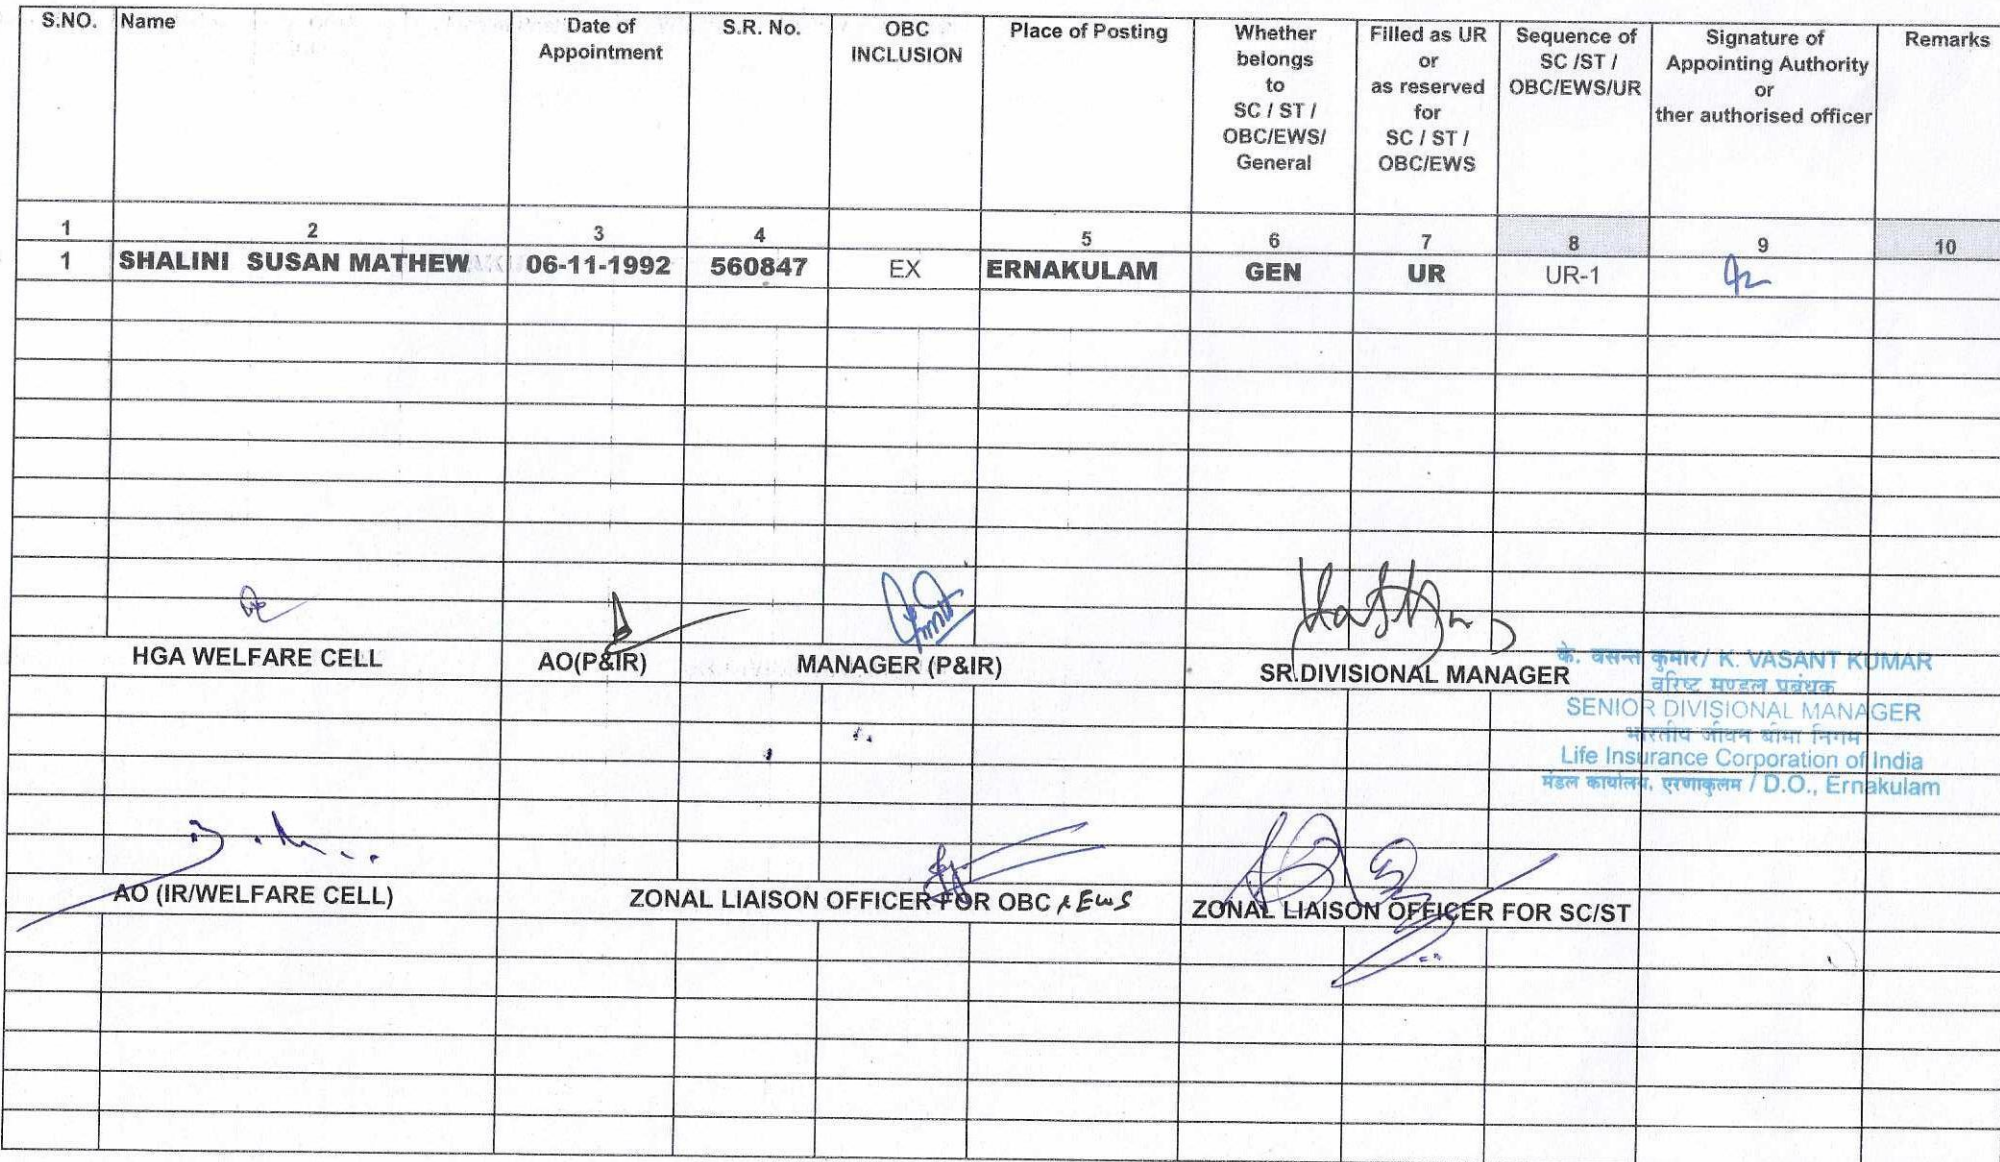 S.NO.
Name
Date of
Appointment
S.R. No.
OBC
INCLUSION
Place of Posting
Whether
belongs
to
SC / ST /
OBC/EWS/
General
Filled as UR
or
as reserved
for
SC / ST /
OBC/EWS
Sequence of
SC /ST /
OBC/EWS/UR
Signature of
Appointing Authority
or
ther authorised officer
Remarks
1 2 3 4 5 6 7 8 9 10
1 SHALINI SUSAN MATHEW 06-11-1992 560847 EX ERNAKULAM GEN UR UR-1
HGA WELFARE CELL AO(P&IR) MANAGER (P&IR) SR.DIVISIONAL MANAGER
के. वसन्त कुमार/ K. VASANT KUMAR
वरिष्ट मण्डल प्रबंधक
SENIOR DIVISIONAL MANAGER
भारतीय जीवन बीमा निगम
Life Insurance Corporation of India
मंडल कार्यालय, एरणाकुलम / D.O., Ernakulam
AO (IR/WELFARE CELL) ZONAL LIAISON OFFICER FOR OBC & EWS ZONAL LIAISON OFFICER FOR SC/ST